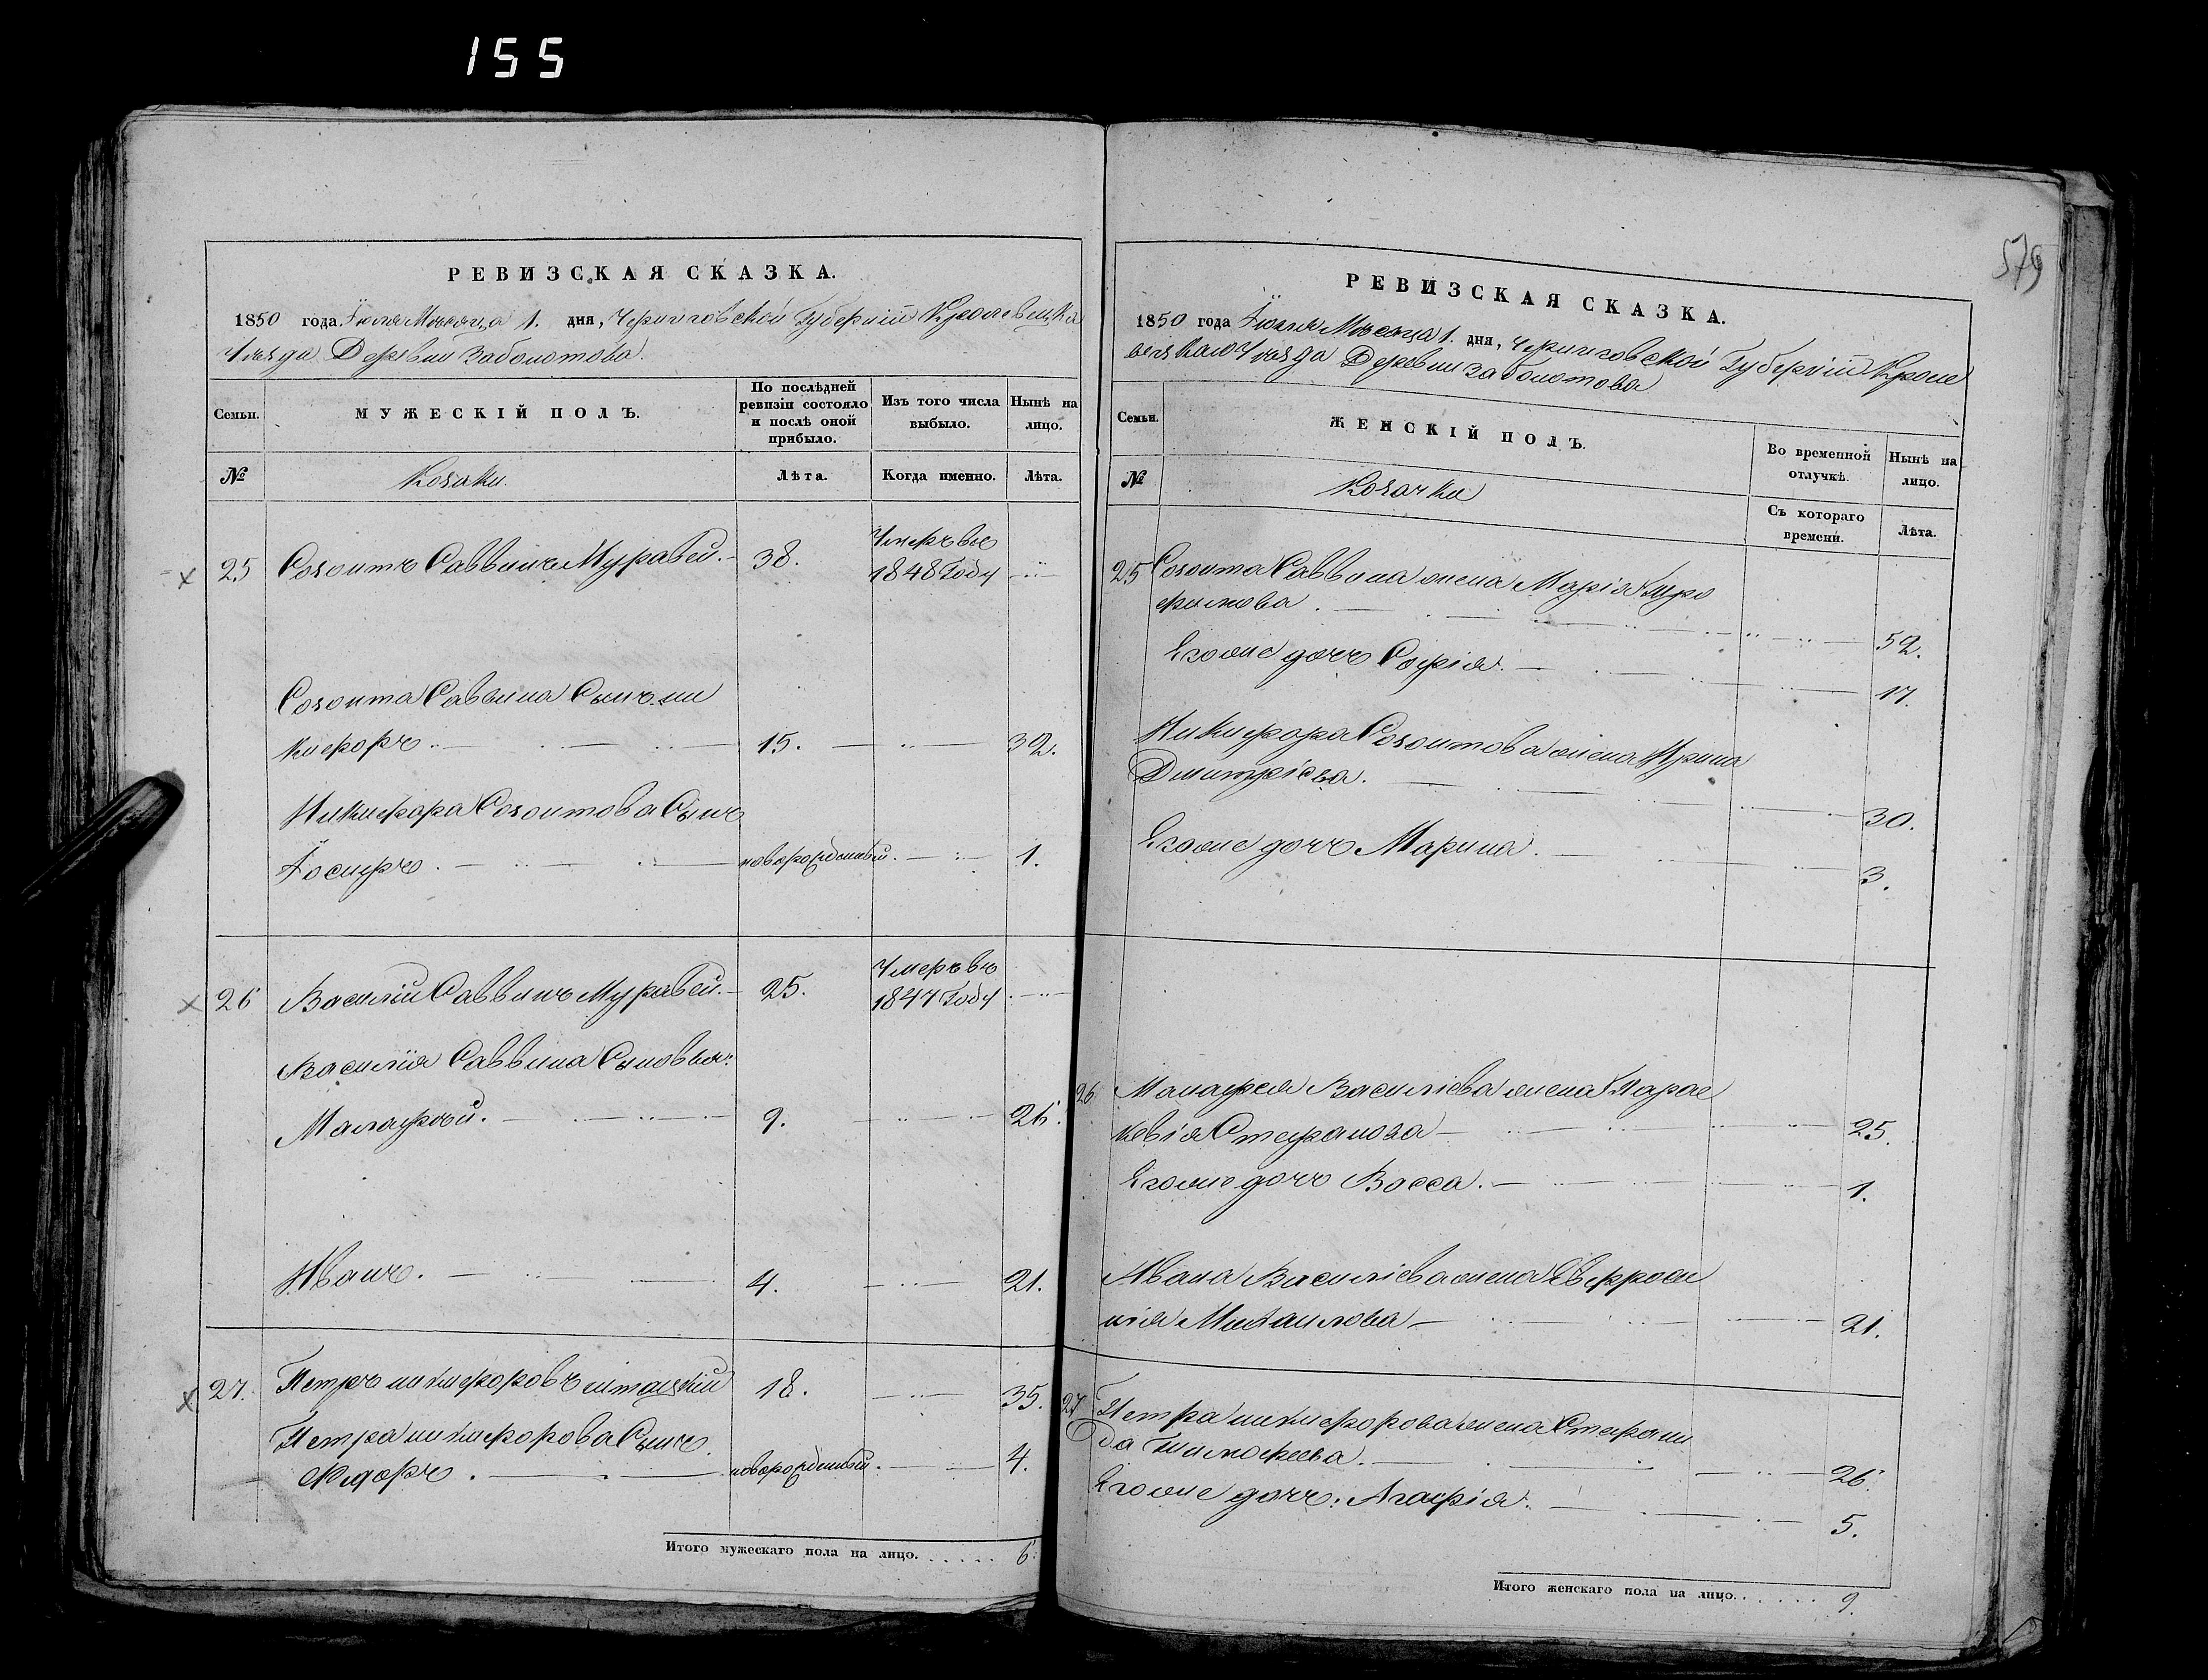 155
РЕВИЗСКАЯ СКАЗКА.
1850 года Іюля Мѣсяца 1. дня, Черниговской Губерніи Кролевецка
Уѣзда Деревни Заболотова.
Семьи.
МУЖЕСКІЙ ПОЛЪ.
По послѣдней
ревизіи состояло
и послѣ оной
прибыло.
Изъ того числа
выбыло.
Нынѣ на
лицо.
№
Козаки.
Лѣта.
Когда именно.
Лѣта.
25 Созонтъ Саввинъ Муравей. 38.
Умеръ въ
1848 Году
Созонта Саввина Сынъ Ни
кифоръ. 15. 32.
Никифора Созонтова Сынъ
Іосифъ. новорожденный. 1.
26 Василій Саввинъ Муравей. 25.
Умеръ въ
1847 Году
Василія Саввина Сыновья:
Малафѣй. 9. 26.
Иванъ. 4. 21.
27. Петръ Никифоровъ 18. 35.
Петра Никифорова Сынъ
Федоръ. новорожденный. 4.
Итого мужескаго пола на лицо. 6.
579
РЕВИЗСКАЯ СКАЗКА.
1850 года Іюля Мѣсяца 1. дня, Черниговской Губерніи Кроле
вецкаго Уѣзда Деревни Заболотова
Семьи.
ЖЕНСКІЙ ПОЛЪ.
Во временной
отлучкѣ.
Нынѣ на
лицо.
№
Козачки
Съ котораго
времени.
Лѣта.
25 Созонта Саввина жена Марія
52.
Егоже дочь Софія. 17.
Никифора Созонтова жена Ирина
Дмитріева. 30.
Егоже дочь Марина. 3.
26 Малафея Василіева жена Парас
кевія Стефанова 25.
Егоже дочь Васса. 1.
Ивана Василіева жена Евфроси
нія Михаилова 21.
27 Петра Никифорова жена Стефани
да Тимофеева. 26.
Егоже дочь: Агафія. 5.
Итого женскаго пола на лицо. 9.